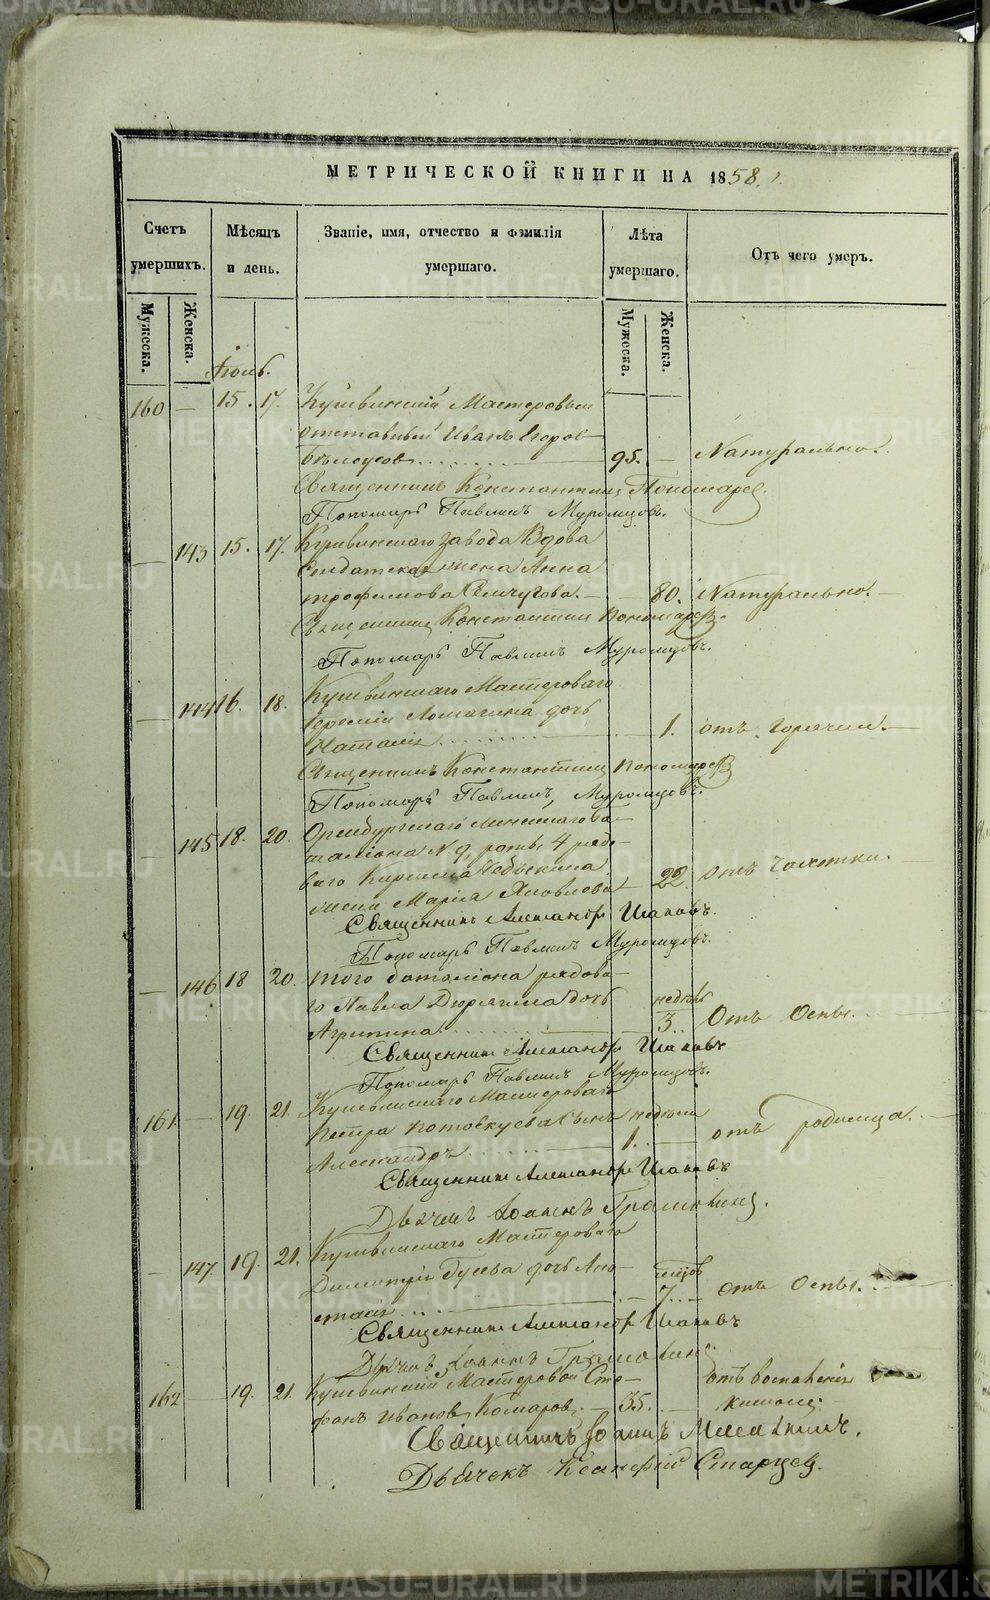 МЕТРИЧЕСКОЙ КНИГИ НА 1858.
Счетъ умершихъ.
Мѣсяцъ и день.
Званіе, имя, отчество и фамилія умершаго.
Лѣта умершаго.
Отъ чего умеръ.
Мужеска.
Женска.
Мужеска.
Женска.
Іюль.
160 — 15. 17. Кушвинскій Мастеровый
отставный Иванъ Егоровъ
Бѣлоусовъ 95. — Натурально.
Священникъ Константинъ Пономаревъ.
Пономарь Павлинъ Муромцовъ.
— 143 15. 17. Кушвинскаго завода Вдова
Солдатская жена Анна
трофимова — 80. Натурально.
Священникъ Константинъ Пономаревъ.
Пономарь Павлинъ Муромцовъ.
— 144 16. 18. Кушвинскаго Мастероваго
дочь
Наталія — 1. отъ горячки.
Священникъ Константинъ Пономаревъ
Пономарь Павлинъ Муромцовъ.
— 145 18. 20. Оренбургскаго линейнаго ба-
таліона N. 9, роты 4 рядо-
ваго Кирилла
жена Марія Яковлева 22. отъ чахотки.
Священникъ Александръ
Пономарь Павлинъ Муромцовъ.
— 146 18 20. того баталіона рядова-
го Павла дочь недѣль
Агрипина 3. Отъ Оспы.
Священникъ Александръ
Пономарь Павлинъ Муромцовъ.
161. — 19. 21. Кушвинскаго Мастероваго
Петра сынъ недѣли
Александръ 1. — отъ родимца.
Священникъ Александръ
Дьячекъ Іоаннъ
— 147. 19. 21. Кушвинскаго Мастероваго
Димитрія Гусева дочь Ана-
стасія — 7. отъ Оспы.
Священникъ Александръ
Дьячекъ Іоаннъ
162 19. 21. Кушвинскій Мастеровой Сте-
фанъ Ивановъ Комаровъ. — 35. —
Священникъ Іоаннъ
Дьячекъ Старцевъ.
METRIKI.GASO-URAL.RU